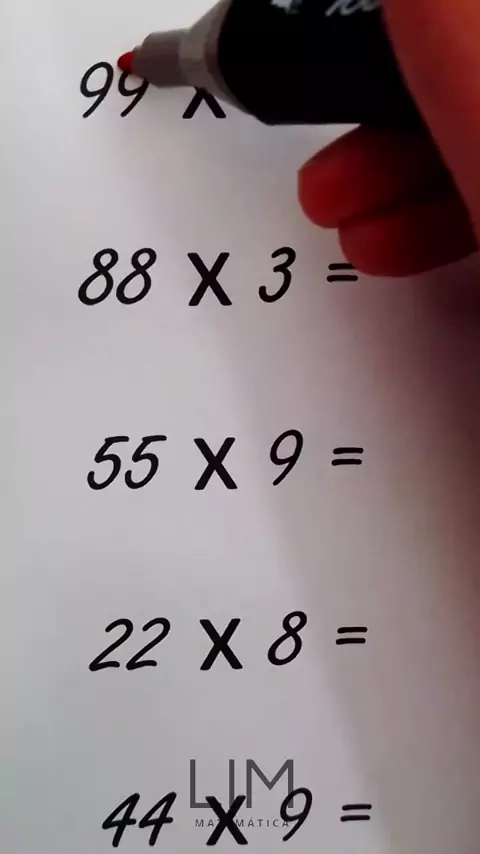 99 X
88 X 3 =
55 X 9 =
22 X 8 =
LIM
MATEMÁTICA
44 X 9 =